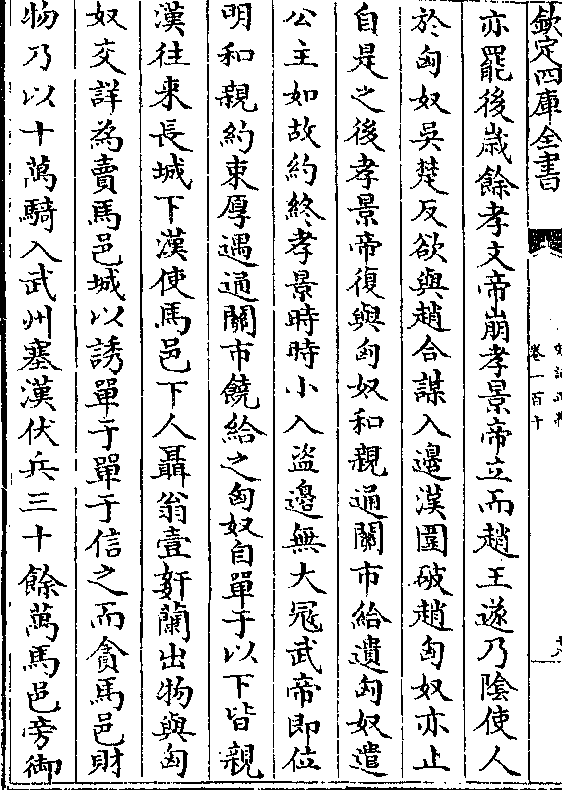 欽定四庫全書
卷一百十
亦罷後嵗餘孝文帝崩孝景帝立而趙王遂乃陰使人
於匈奴吳楚反欲與趙合謀入邊漢圍破趙匈奴亦止
自是之後孝景帝復與匈奴和親通關市給遺匈奴遣
公主如故約終孝景時時小入盗邊無大冦武帝即位
明和親約束厚遇通關市饒給之匈奴自單于以下皆親
漢往来長城下漢使馬邑下人聶翁壹奸蘭出物與匈
奴交詳為賣馬邑城以誘單于單于信之而貪馬邑財
物乃以十萬騎入武州塞漢伏兵三十餘萬馬邑旁御